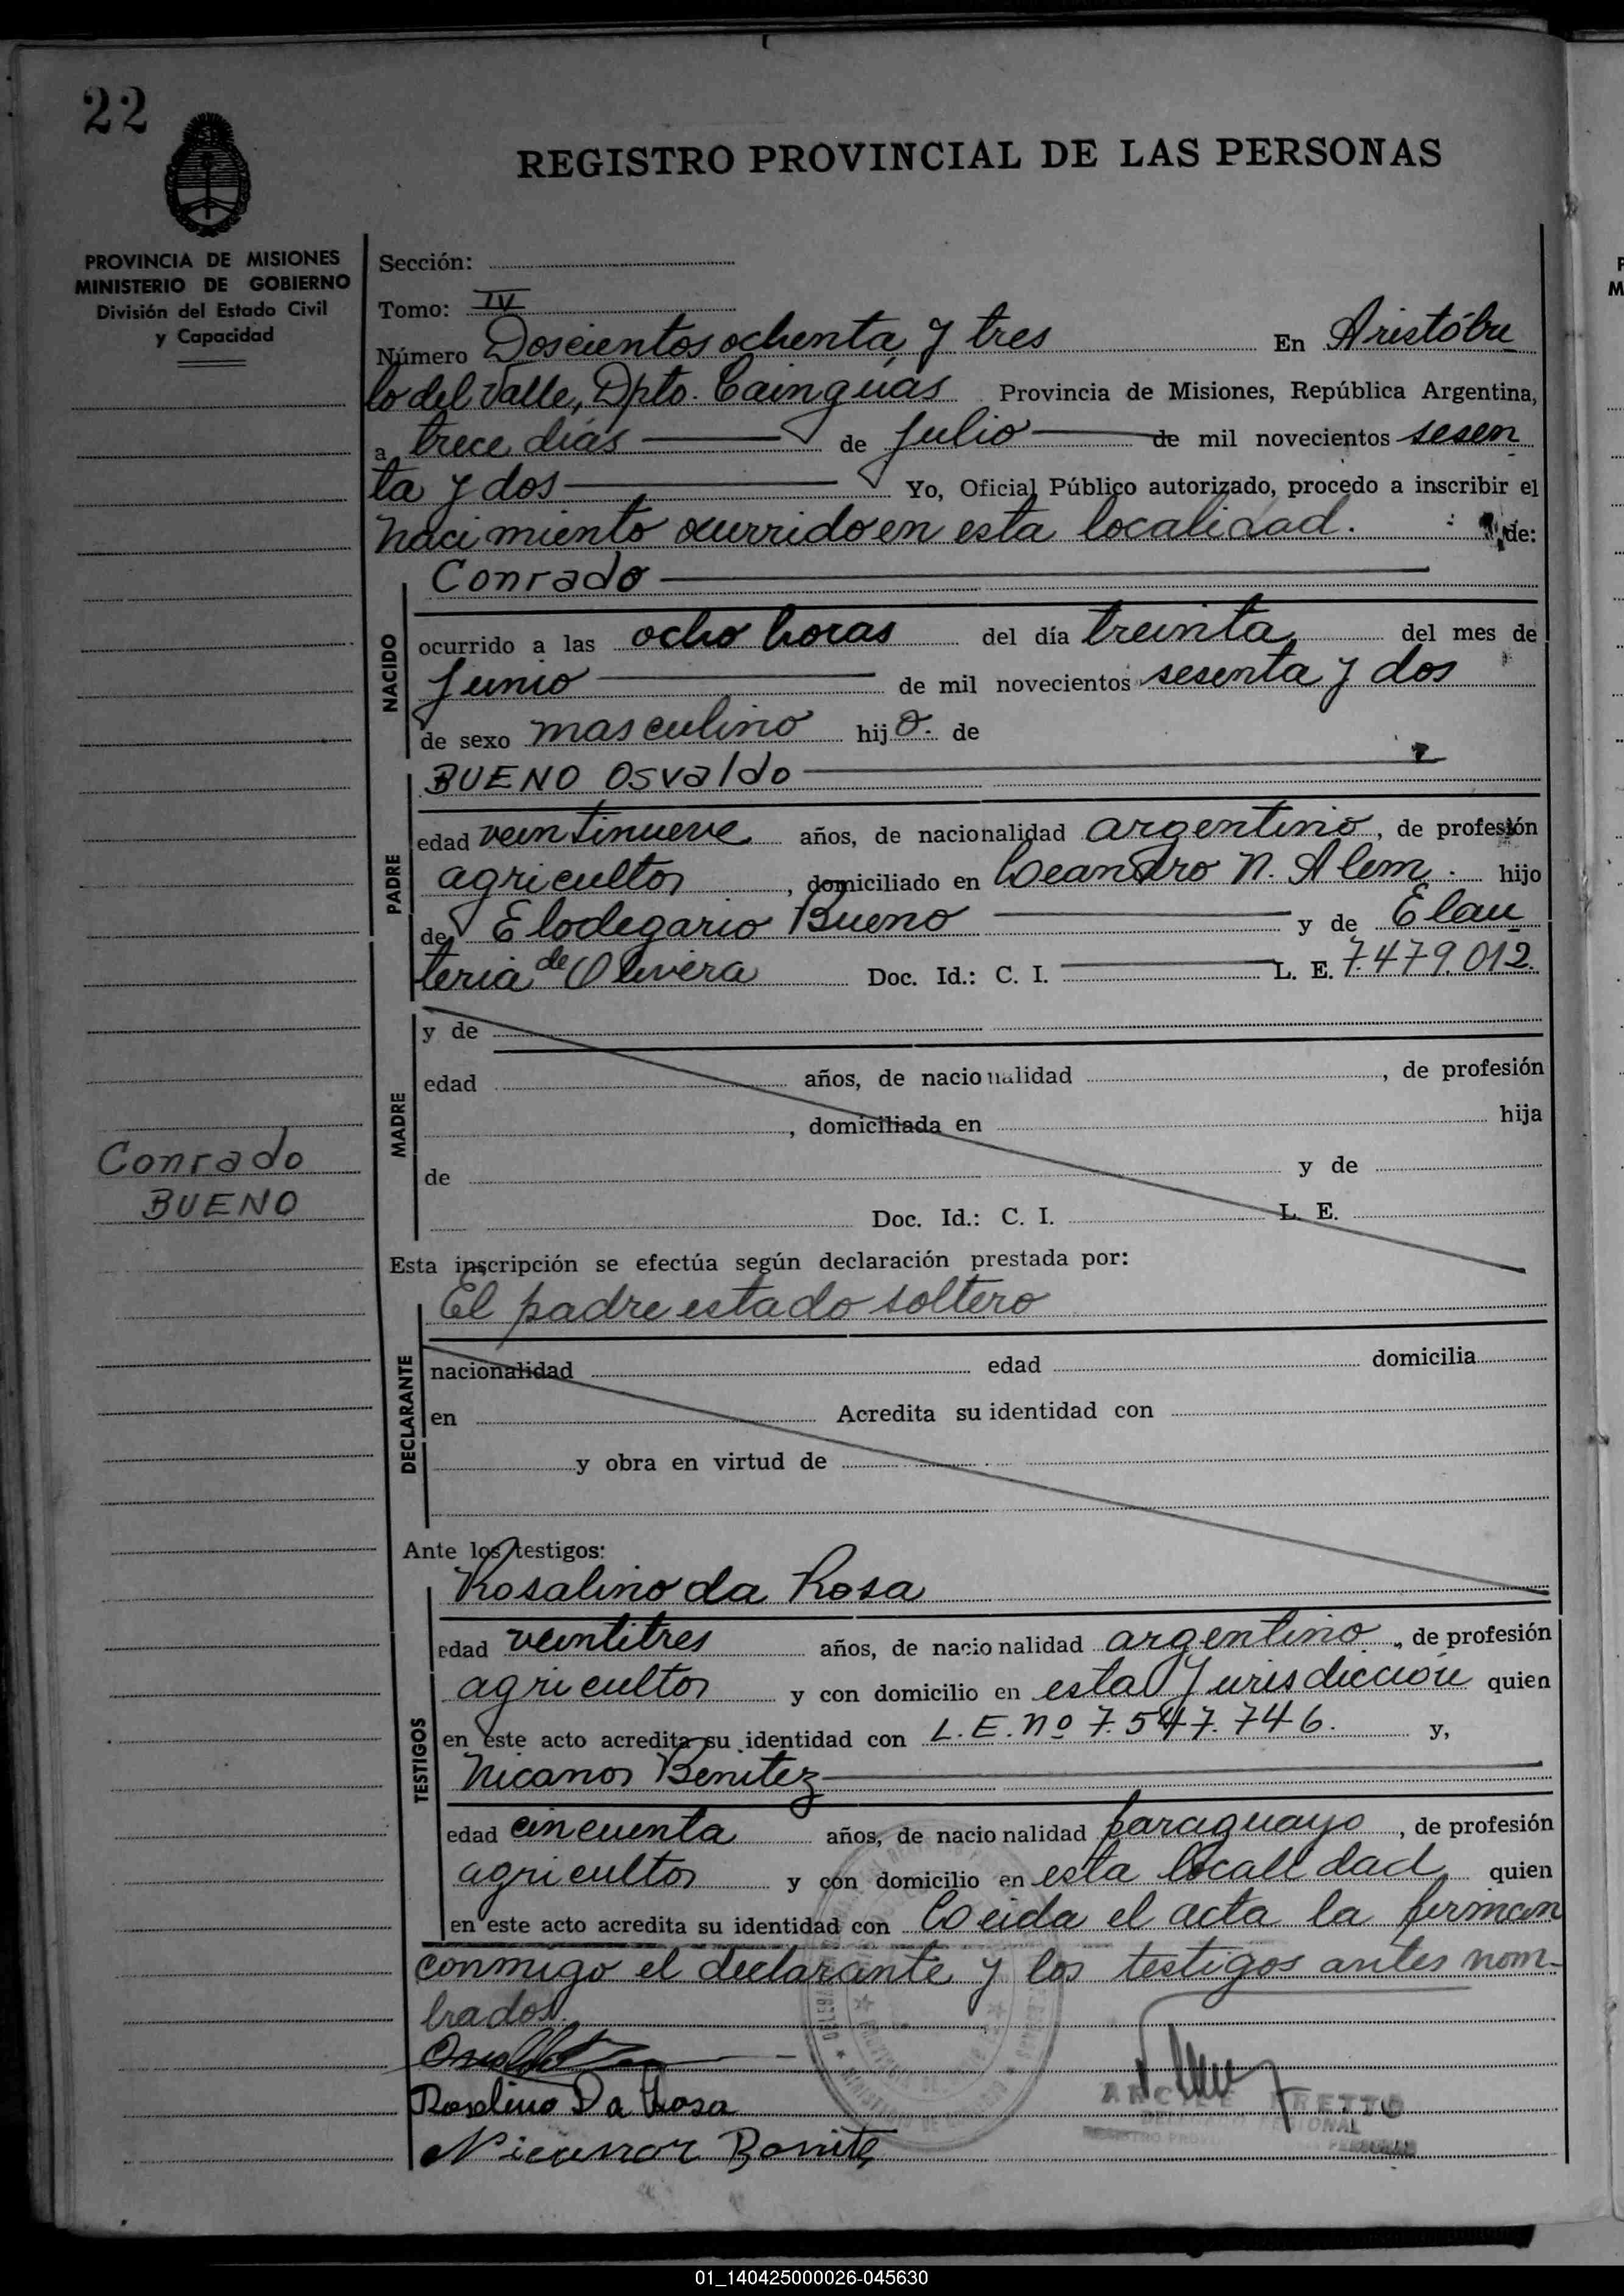 22
REGISTRO PROVINCIAL DE LAS PERSONAS
PROVINCIA DE MISIONES
MINISTERIO DE GOBIERNO
División del Estado Civil
y Capacidad
Sección:
Tomo: IV
Número Doscientos ochenta y tres En Aristóbu
lo del Valle, Dpto. Cainguás Provincia de Misiones, República Argentina,
a trece días de Julio de mil novecientos sesen
ta y dos Yo, Oficial Público autorizado, procedo a inscribir el
nacimiento ocurrido en esta localidad. de:
NACIDO
Conrado
ocurrido a las ocho horas del día treinta del mes de
Junio de mil novecientos sesenta y dos
de sexo masculino hijo. de
PADRE
BUENO Osvaldo
edad veintinueve años, de nacionalidad argentino, de profesión
agricultor, domiciliado en Leandro N. Alem. hijo
de Elodegario Bueno y de Elau
teria de Olivera Doc. Id.: C. I. L. E. 7.479.012.
MADRE
y de
edad años, de nacionalidad , de profesión
, domiciliada en hija
de y de
Doc. Id.: C. I. L. E.
Conrado
BUENO
Esta inscripción se efectúa según declaración prestada por:
DECLARANTE
El padre estado soltero
nacionalidad edad domicilia
en Acredita su identidad con
y obra en virtud de
Ante los testigos:
TESTIGOS
Rosalino da Rosa
edad veintitres años, de nacionalidad argentino, de profesión
agricultor y con domicilio en esta Jurisdicción quien
en este acto acredita su identidad con L.E. nº 7.547.746. y,
Nicanor Benitez
edad cincuenta años, de nacionalidad paraguayo, de profesión
agricultor y con domicilio en esta localidad quien
en este acto acredita su identidad con Leida el acta la firman
conmigo el declarante y los testigos antes nom-
brados.
Rosalino Da Rosa
Nicanor Benitez
01_140425000026-045630